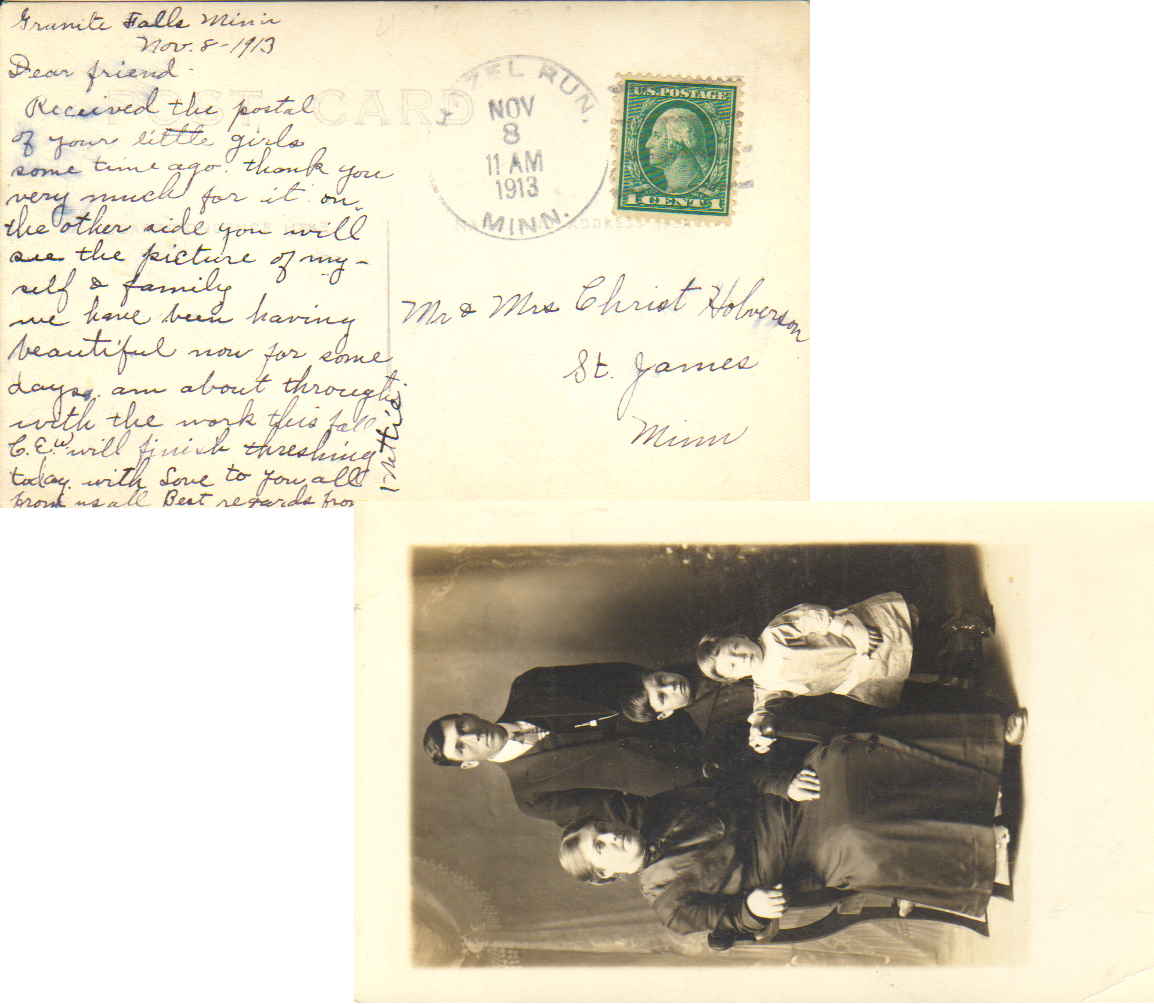 Granite Falls Minn
Nov. 8-1913
Dear friend.
Received the postal
of your little girls
some time ago. thank you
very much for it on
the other side you will
see the picture of my-
self & family
we have been having
beautiful now for some
days. am about through
with the work this fall
C.E.W will finish threshing
today. with Love to you all
from us all Best regards from
POST CARD
HAZEL RUN.
NOV
8
11 AM
1913
MINN.
U.S. POSTAGE
1 CENT 1
Mr & Mrs Christ Holverson
St. James
Minn